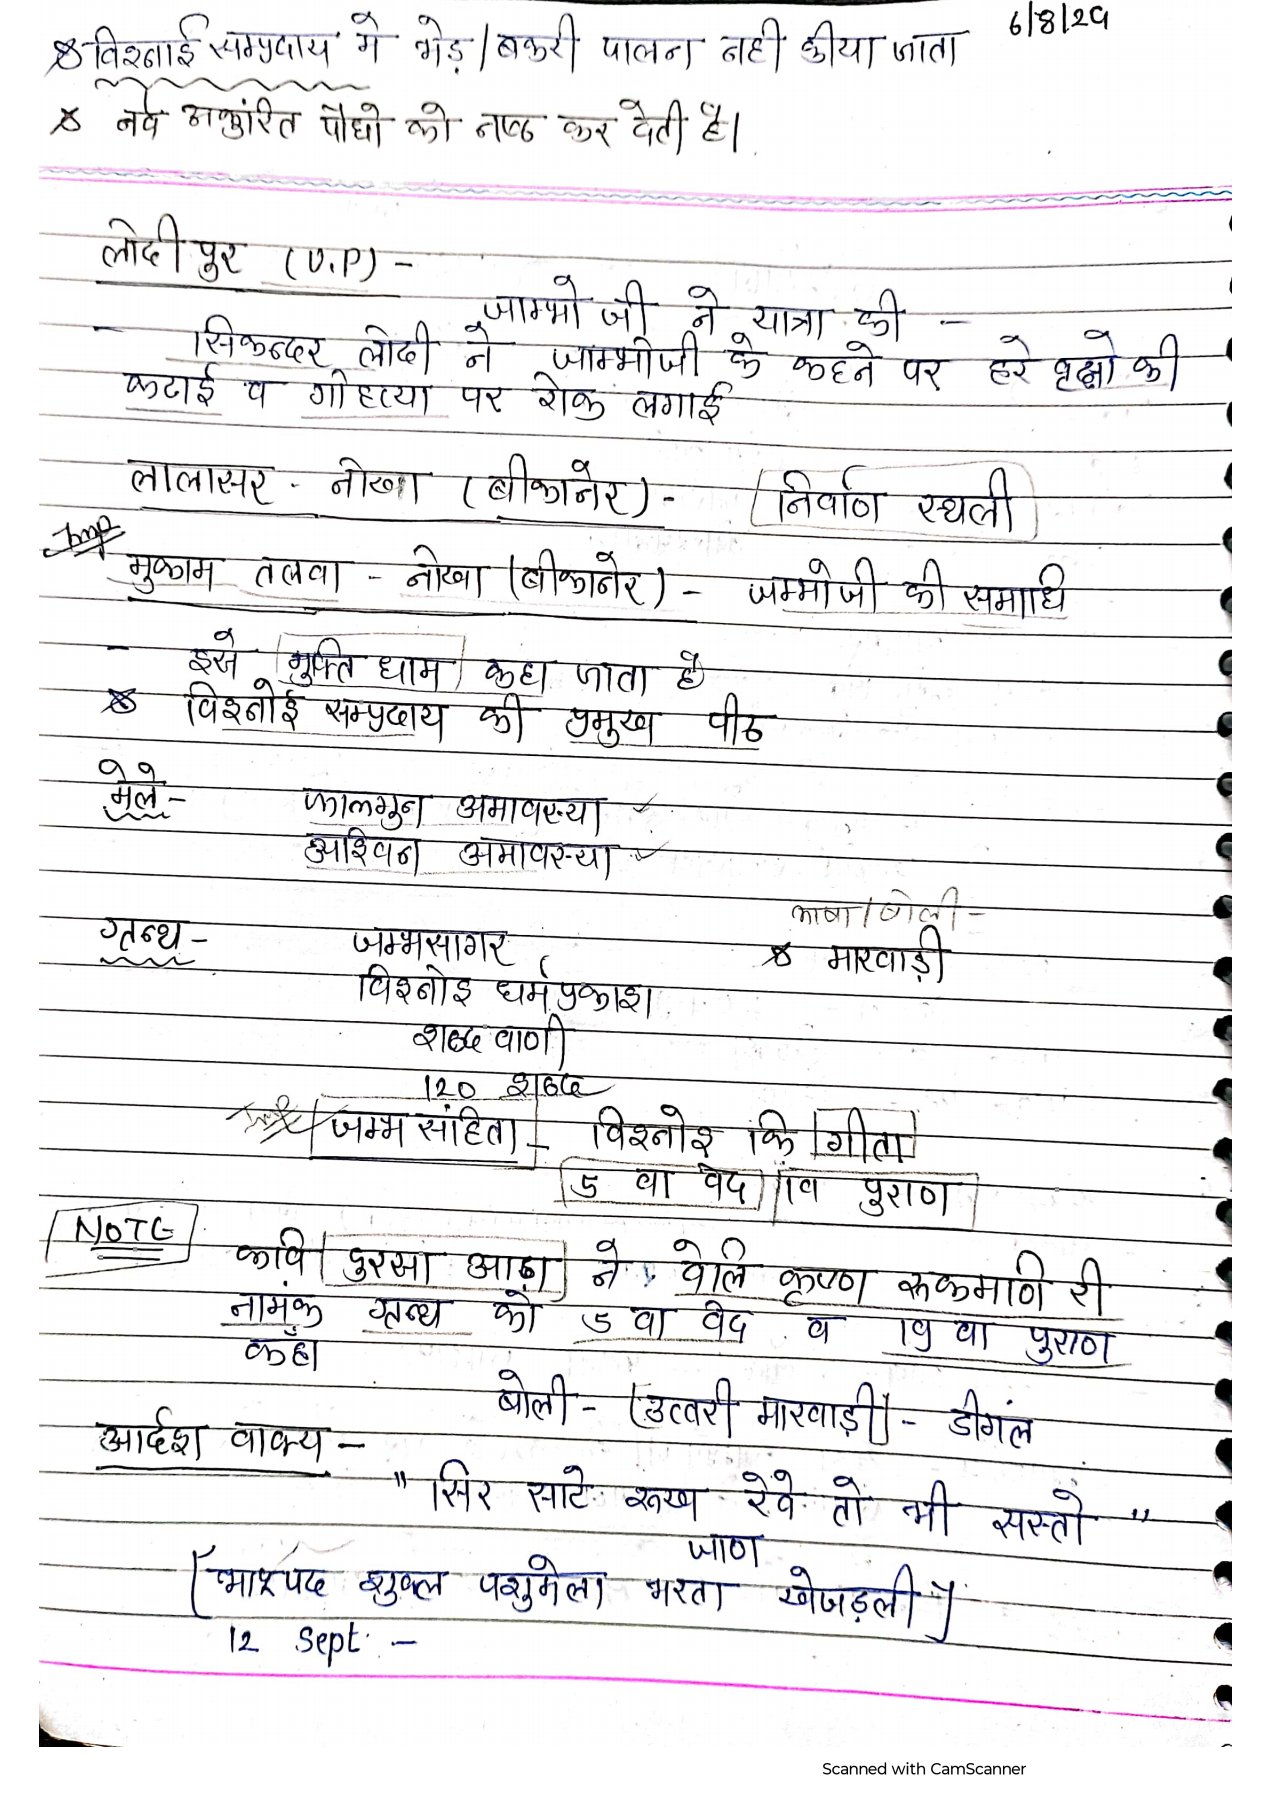 6/8/29
विश्नाई सम्प्रदाय मे भेड़/बकरी पालन नही कीया जाता
नवे अकुंरित पौधो को नष्ठ कर देती है।
लोदीपुर (U.P) -
जाम्भो जी ने यात्रा की -
- सिकन्दर लोदी ने जाम्भोजी के कहने पर हरे वृक्षो की
कटाई व गोहत्या पर रोक लगाई
लालासर - नोखा (बीकानेर) - निर्वाण स्थली
Imp
मुकाम तलवा - नोखा (बीकानेर) - जम्भोजी की समाधि
- इसे मुक्ति धाम कहा जाता है
विश्नोई सम्प्रदाय की प्रमुख पीठ
मेले - फालगुन अमावस्या
अश्विन अमावस्या
भाषा/बोली -
ग्रन्थ - जम्भसागर मारवाड़ी
विश्नोइ धर्म प्रकाश
शब्द वाणी
120 शब्द
Imp जम्भ संहिता - विश्नोइ कि गीता
5 वा वेद 19 पुराण
NOTE
कवि दुरसा आढ़ा ने वेलि कृष्ण रूकमाणि री
नामंक ग्रन्थ को 5 वा वेद व 19 वा पुराण
कहाँ
बोली - (उत्तरी मारवाड़ी) - डीगंल
आर्दश वाक्य -
" सिर साटे रूख रेवे तो भी सस्तो "
जाण
[भाद्रपद शुक्ल पशुमेला भरता खेजड़ली]
12 Sept. -
Scanned with CamScanner